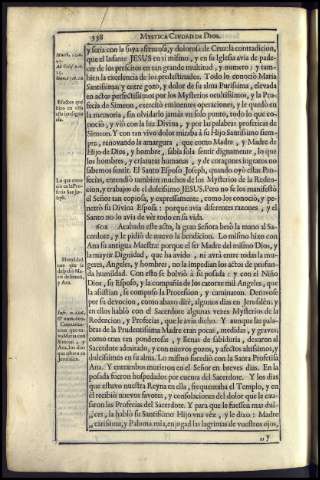 338
MYSTICA CIUDAD DE DIOS.
y seria con la suya afrentosa, y dolorosa de Cruz: la contradicion,
que el Infante JESUS en sí mismo, y en su Iglesia avia de pade-
cer de los prescitos en tan grande multitud, y numero; y tam-
bien la excelencia de los predestinados. Todo lo conoció Maria
Santissima; y entre gozo, y dolor de su alma Purissima, elevada
en actos perfectissimos por los Mysterios ocultissimos, y la Pro-
fecia de Simeon, exercitó eminentes operaciones, y le quedó en
la memoria, sin olvidarlo jamás un solo punto, todo lo que co-
noció, y vió con la luz Divina, y por las palabras profeticas de
Simeon. Y con tan vivo dolor miraba à su Hijo Santissimo siem-
pre, renovando la amargura, que como Madre, y Madre de
Hijo de Dios, y hombre, sabia sola sentir dignamente, lo que
los hombres, y criaturas humanas, y de coraçones ingratos no
sabemos sentir. El Santo Esposo Joseph, quando oyó estas Pro-
fecias, entendió tambien muchos de los Mysterios de la Reden-
cion, y trabajos de el dulcissimo JESUS. Pero no se los manifestó
el Señor tan copiosa, y expressamente, como los conoció, y pe-
netró su Divina Esposa: porque avia diferentes razones, y el
Santo no lo avia de vèr todo en su vida.
601 Acabado este acto, la gran Señora besó la mano al Sa-
cerdote, y le pidió de nuevo la bendicion. Lo mismo hizo con
Ana su antigua Maestra: porque el ser Madre del mismo Dios, y
la mayor Dignidad, que ha avido, ni avrà entre todas las mu-
geres, Angeles, y hombres, no la impedian los actos de profun-
da humildad. Con esto se bolvió à su posada: y con el Niño
Dios, su Esposo, y la compañia de los catorze mil Angeles, que
la assistian, se compuso la Procession, y caminaron. Detuvose
por su devocion, como abaxo diré, algunos dias en Jerusalèn: y
en ellos habló con el Sacerdote algunas vezes Mysterios de la
Redencion, y Profecias, que le avia dicho. Y aunque las pala-
bras de la Prudentissima Madre eran pocas, medidas, y graves;
como eran tan ponderosas, y llenas de sabiduria, dexaron al
Sacerdote admirado, y con nuevos gozos, y afectos altissimos, y
dulcissimos en su alma. Lo mismo sucedió con la Santa Profetisa
Ana. Y entrambos murieron en el Señor en breves dias. En la
posada fueron hospedados por cuenta del Sacerdote. Y los dias
que estuvo nuestra Reyna en ella, frequentaba el Templo, y en
él recibió nuevos favores, y consolaciones del dolor que le cau-
saron las Profecias del Sacerdote. Y para que le fuessen mas dul-
ces, la habló su Santissimo Hijo una vez, y le dixo: Madre
carissima, y Paloma mia, enjugad las lagrimas de vuestros ojos,
y